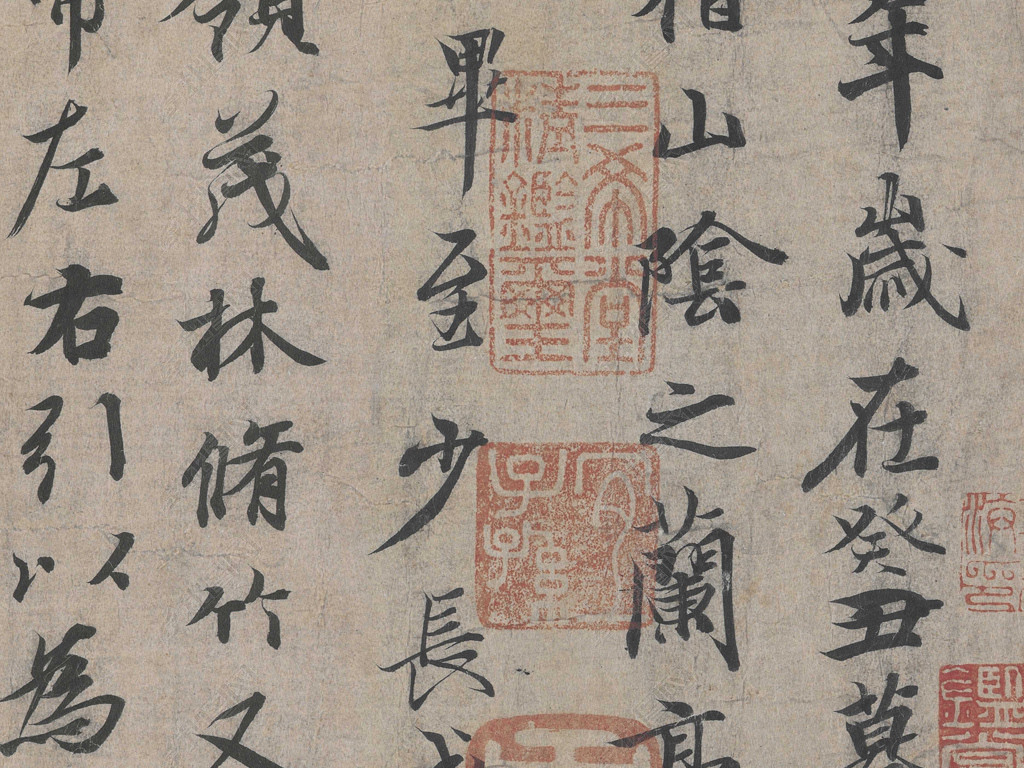 年歲在癸丑暮
稽山陰之蘭亭
畢至少長咸
領茂林脩竹又
帶左右引以為
三希堂
精鑑璽
宜
子孫